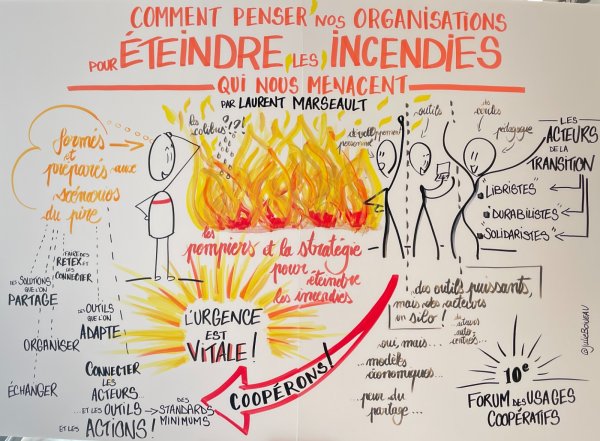 COMMENT PENSER NOS ORGANISATIONS
POUR ÉTEINDRE LES INCENDIES
QUI NOUS MENACENT
PAR LAURENT MARSEAULT
formés
et
préparés aux
scénarios
du pire
les
colibris ?!?!
développement
personnel
outils
des
écoles
pédagogie
LES
ACTEURS
DE LA
TRANSITION
"LIBRISTES"
"DURABILISTES"
"SOLIDARISTES"
les
pompiers et la stratégie
pour éteindre
les incendies
FAIRE DES
RETEX ET
LES
CONNECTER
DES SOLUTIONS
QUE L'ON
PARTAGE
DES OUTILS
QUE L'ON
ADAPTE
ORGANISER
ÉCHANGER
CONNECTER
LES
ACTEURS...
... ET LES OUTILS
ET LES ACTIONS !
DES
STANDARDS
MINIMUMS
L'URGENCE
EST
VITALE !
COOPÉRONS !
des outils puissants,
mais des acteurs
en silo !
des
acteurs
auto-
centrés
oui, mais...
... modèles
économiques...
... peur du
partage...
10e
FORUM DES USAGES
COOPÉRATIFS